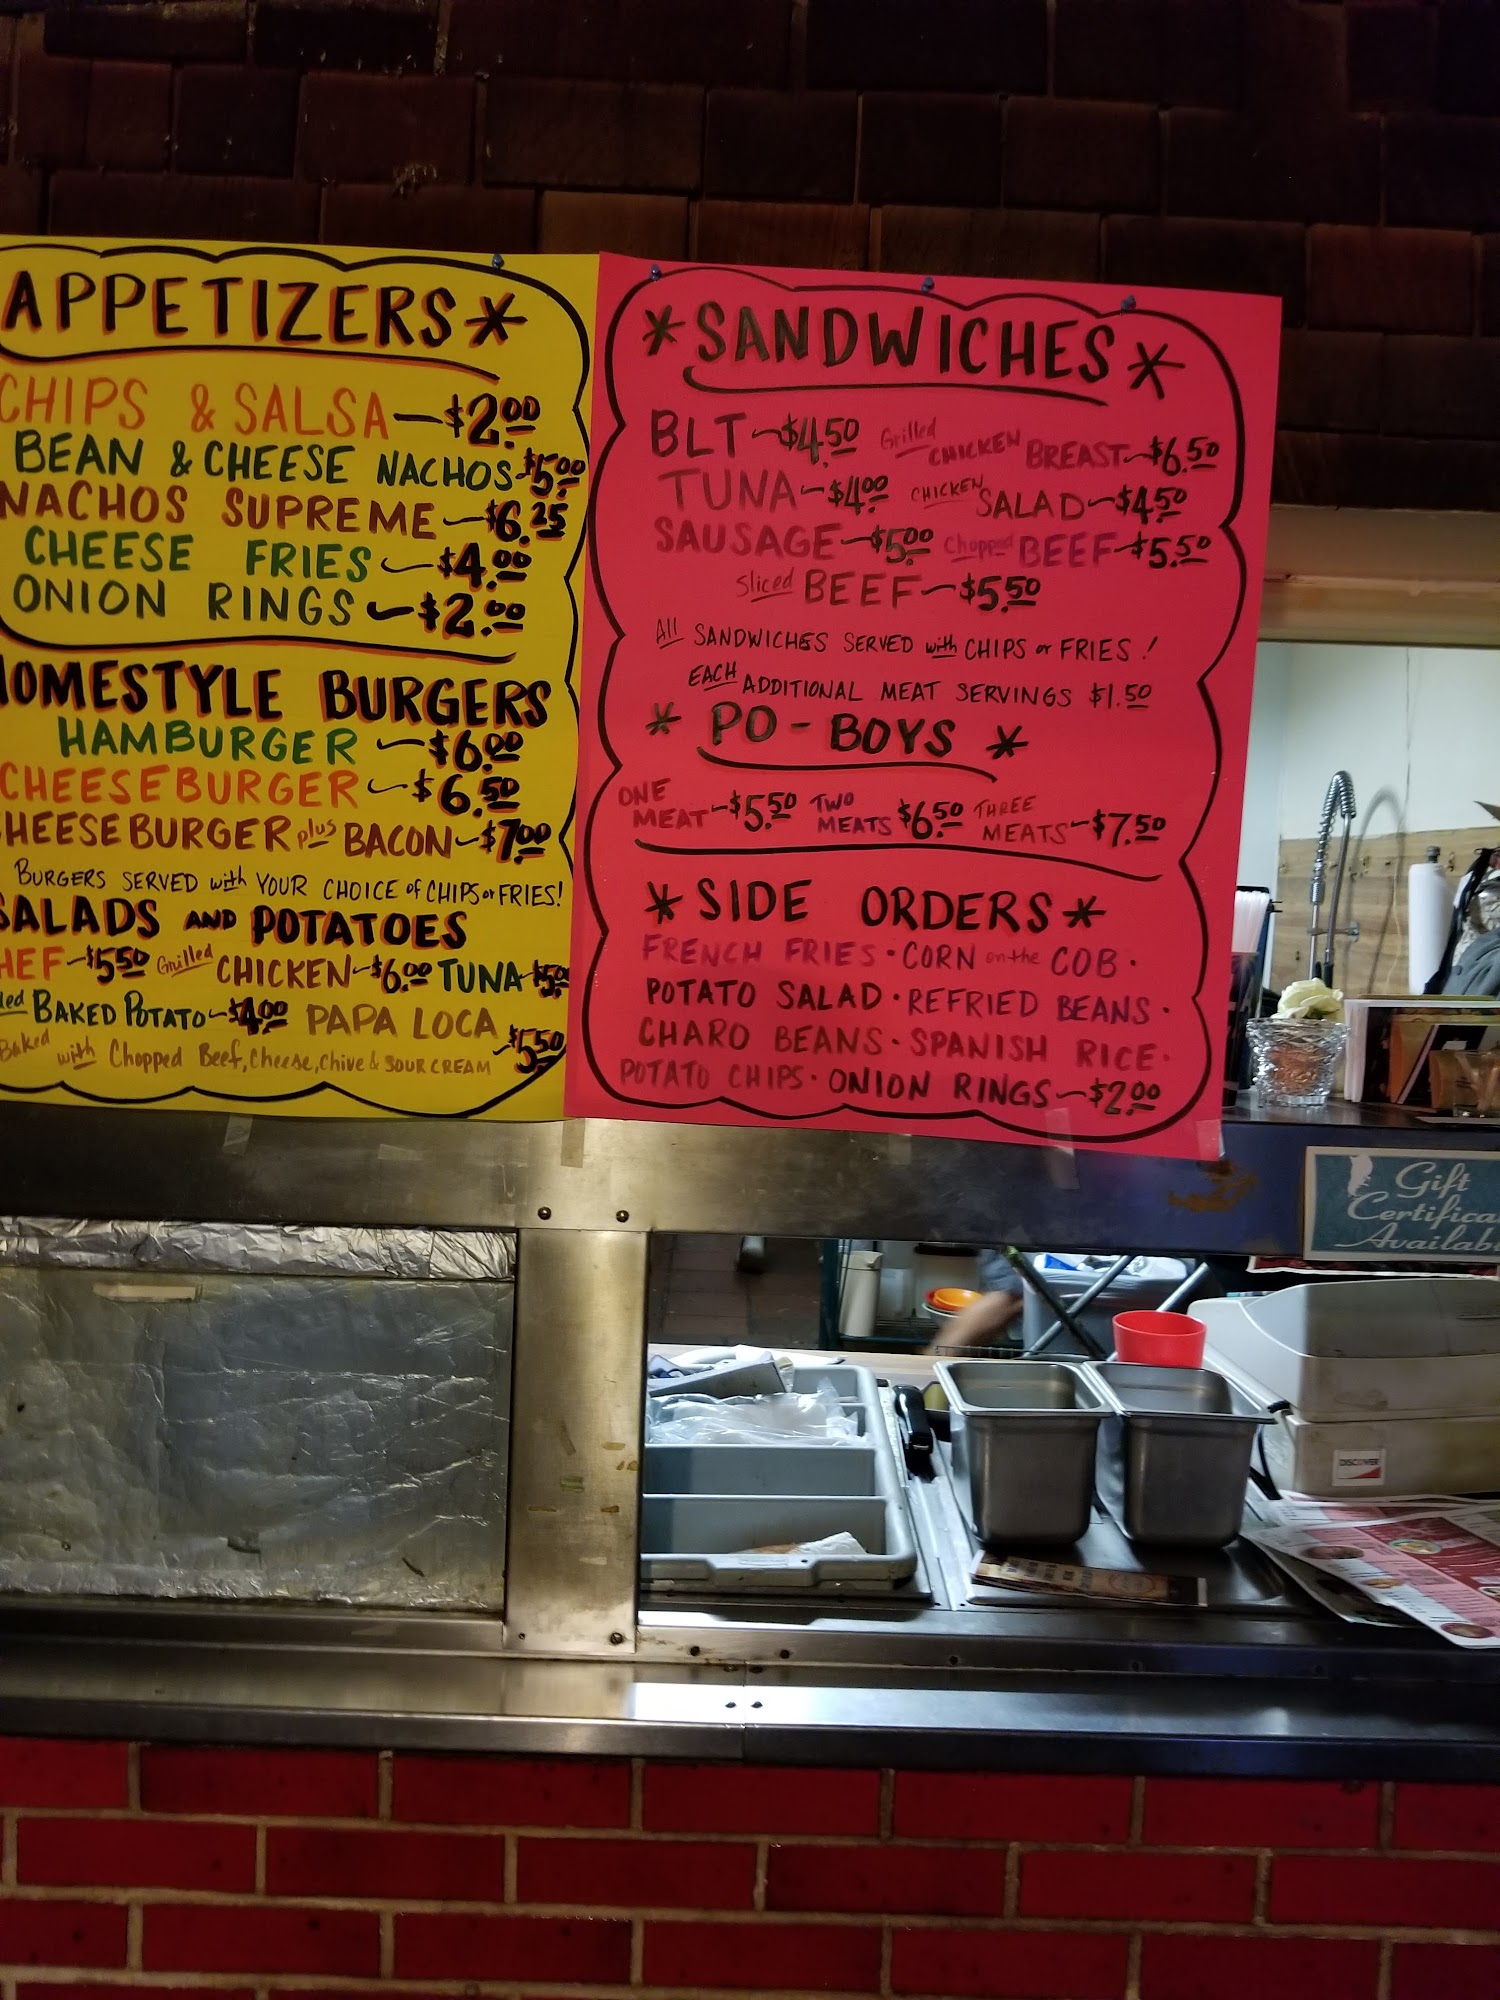 APPETIZERS *
CHIPS & SALSA - $2.00
BEAN & CHEESE NACHOS $5.00
NACHOS SUPREME - $6.25
CHEESE FRIES - $4.00
ONION RINGS - $2.00
HOMESTYLE BURGERS
HAMBURGER - $6.00
CHEESEBURGER - $6.50
CHEESEBURGER plus BACON - $7.00
BURGERS SERVED with YOUR CHOICE of CHIPS or FRIES!
SALADS AND POTATOES
HEF - $5.50 Grilled CHICKEN - $6.00 TUNA - $5.00
BAKED POTATO - $4.00 PAPA LOCA - $5.50
Baked with Chopped Beef, Cheese, Chive & SOUR CREAM
* SANDWICHES *
BLT - $4.50 Grilled CHICKEN BREAST - $6.50
TUNA - $4.00 CHICKEN SALAD - $4.50
SAUSAGE - $5.00 Chopped BEEF - $5.50
Sliced BEEF - $5.50
All SANDWICHES SERVED with CHIPS or FRIES!
EACH ADDITIONAL MEAT SERVINGS $1.50
* PO-BOYS *
ONE MEAT - $5.50 TWO MEATS $6.50 THREE MEATS - $7.50
* SIDE ORDERS *
FRENCH FRIES · CORN on the COB ·
POTATO SALAD · REFRIED BEANS ·
CHARO BEANS · SPANISH RICE ·
POTATO CHIPS · ONION RINGS - $2.00
Gift
Certifica
Availab
DISCOVER